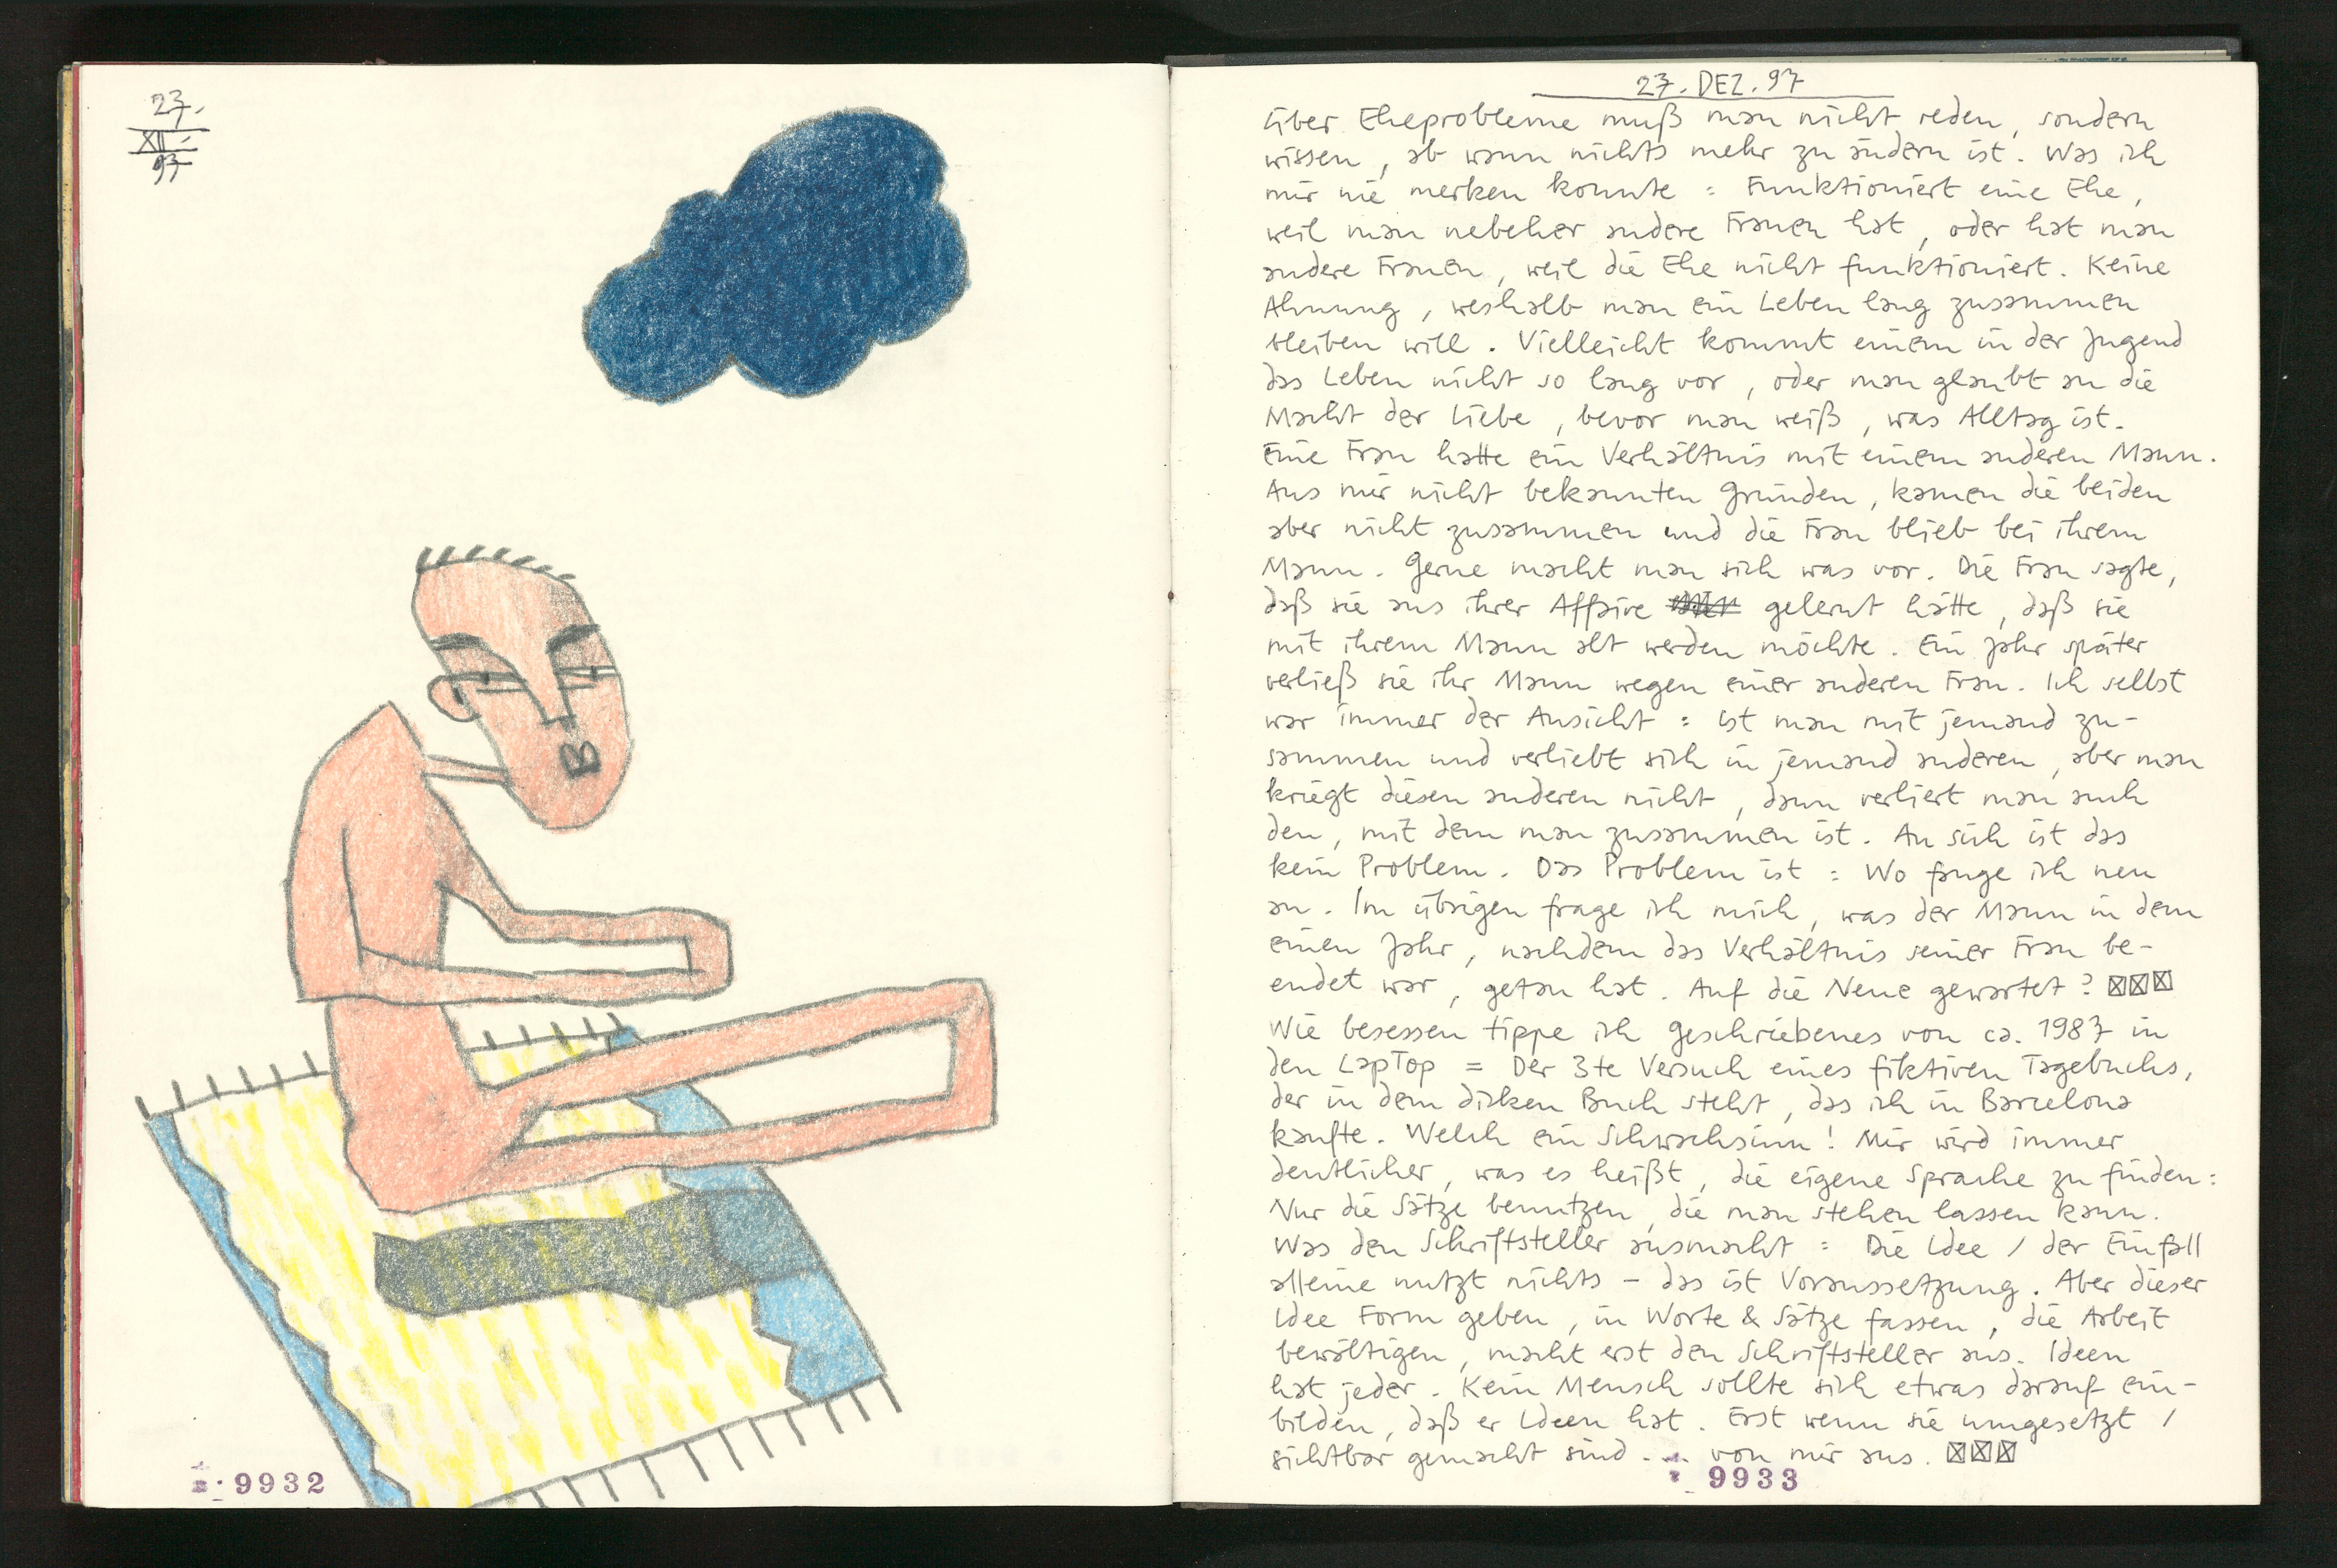 23.
XII.
97
9932
27. DEZ. 97
über Eheprobleme muß man nicht reden, sondern
wissen, ab wann nichts mehr zu ändern ist. Was ich
mir nie merken konnte : Funktioniert eine Ehe,
weil man nebeher andere Frauen hat, oder hat man
andere Frauen, weil die Ehe nicht funktioniert. Keine
Ahnung, weshalb man ein Leben lang zusammen
bleiben will. Vielleicht kommt einem in der Jugend
das Leben nicht so lang vor, oder man glaubt an die
Macht der Liebe, bevor man weiß, was Alltag ist.
Eine Frau hatte ein Verhältnis mit einem anderen Mann.
Aus mir nicht bekannten Gründen, kamen die beiden
aber nicht zusammen und die Frau blieb bei ihrem
Mann. Gerne macht man sich was vor. Die Frau sagte,
daß sie aus ihrer Affaire gelernt hätte, daß sie
mit ihrem Mann alt werden möchte. Ein Jahr später
verließ sie ihr Mann wegen einer anderen Frau. Ich selbst
war immer der Ansicht : ist man mit jemand zu-
sammen und verliebt sich in jemand anderen, aber man
kriegt diesen anderen nicht, dann verliert man auch
den, mit dem man zusammen ist. An sich ist das
kein Problem. Das Problem ist : Wo fange ich neu
an. Im übrigen frage ich mich, was der Mann in dem
einen Jahr, nachdem das Verhältnis seiner Frau be-
endet war, getan hat. Auf die Neue gewartet ? ☒☒☒
Wie besessen tippe ich geschriebenes von ca. 1987 in
den LapTop = Der 3te Versuch eines fiktiven Tagebuchs,
der in dem dicken Buch steht, das ich in Barcelona
kaufte. Welch ein Schwachsinn ! Mir wird immer
deutlicher, was es heißt, die eigene Sprache zu finden :
Nur die Sätze benutzen, die man stehen lassen kann.
Was den Schriftsteller ausmacht : Die Idee / der Einfall
alleine nutzt nichts – das ist Voraussetzung. Aber dieser
Idee Form geben, in Worte & Sätze fassen, die Arbeit
bewältigen, macht erst den Schriftsteller aus. Ideen
hat jeder. Kein Mensch sollte sich etwas darauf ein-
bilden, daß er Ideen hat. Erst wenn sie umgesetzt /
sichtbar gemacht sind ... von mir aus. ☒☒☒
9933